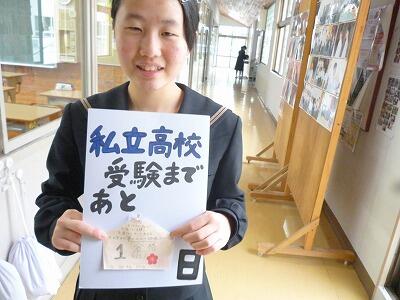 私立高校
受験まで
あと
1
日